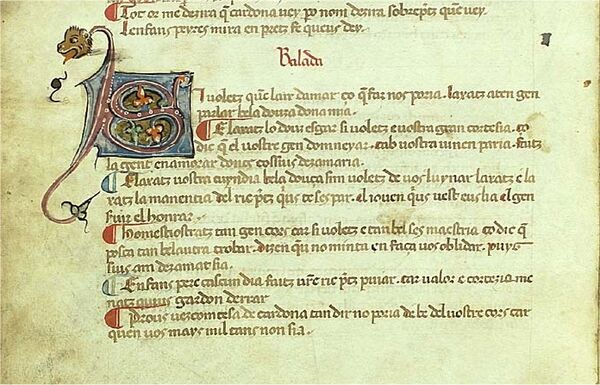 Tot er me denra q̃ cardona vey. po nom denra sobrep̃tz que vey.
Lenfans peyres mira en pretz se queus dey.
Balada
Si voletz qũe laix damar. co q̃ far nos poria. laratz aten gen
parlar bela douza dona mia.
Elaratz lo dous esgar si voletz e vostra gran cortesia. co
die q̃ el vostre gen domneyar. cab vostra vinen paria. faitz
la gent enamorar donc cossius dezamaria.
Elaratz vostra cuyndia bela douca sim voletz de vos luynar laratz e la
ratz la manentia del ric p̃tz q̃us tes par. el ioven q̃us vest eus ha el gen
fuir el honrar.
tan gen cors car si voletz e tan bel ses maestria co die q̃
posca tan bel autra trobar. dizen q̃i no minta en faça vos oblidar. puys
suis am dezamat sia.
Enfans pere cascun dia faitz vr̃e ric p̃tz puiar. car valor e cortezia me
natz quius gardon derrar
Pros vezcomtesa de cardona tan dir no poria de be del vostre cors car
quen vos mays mil tans non sia.